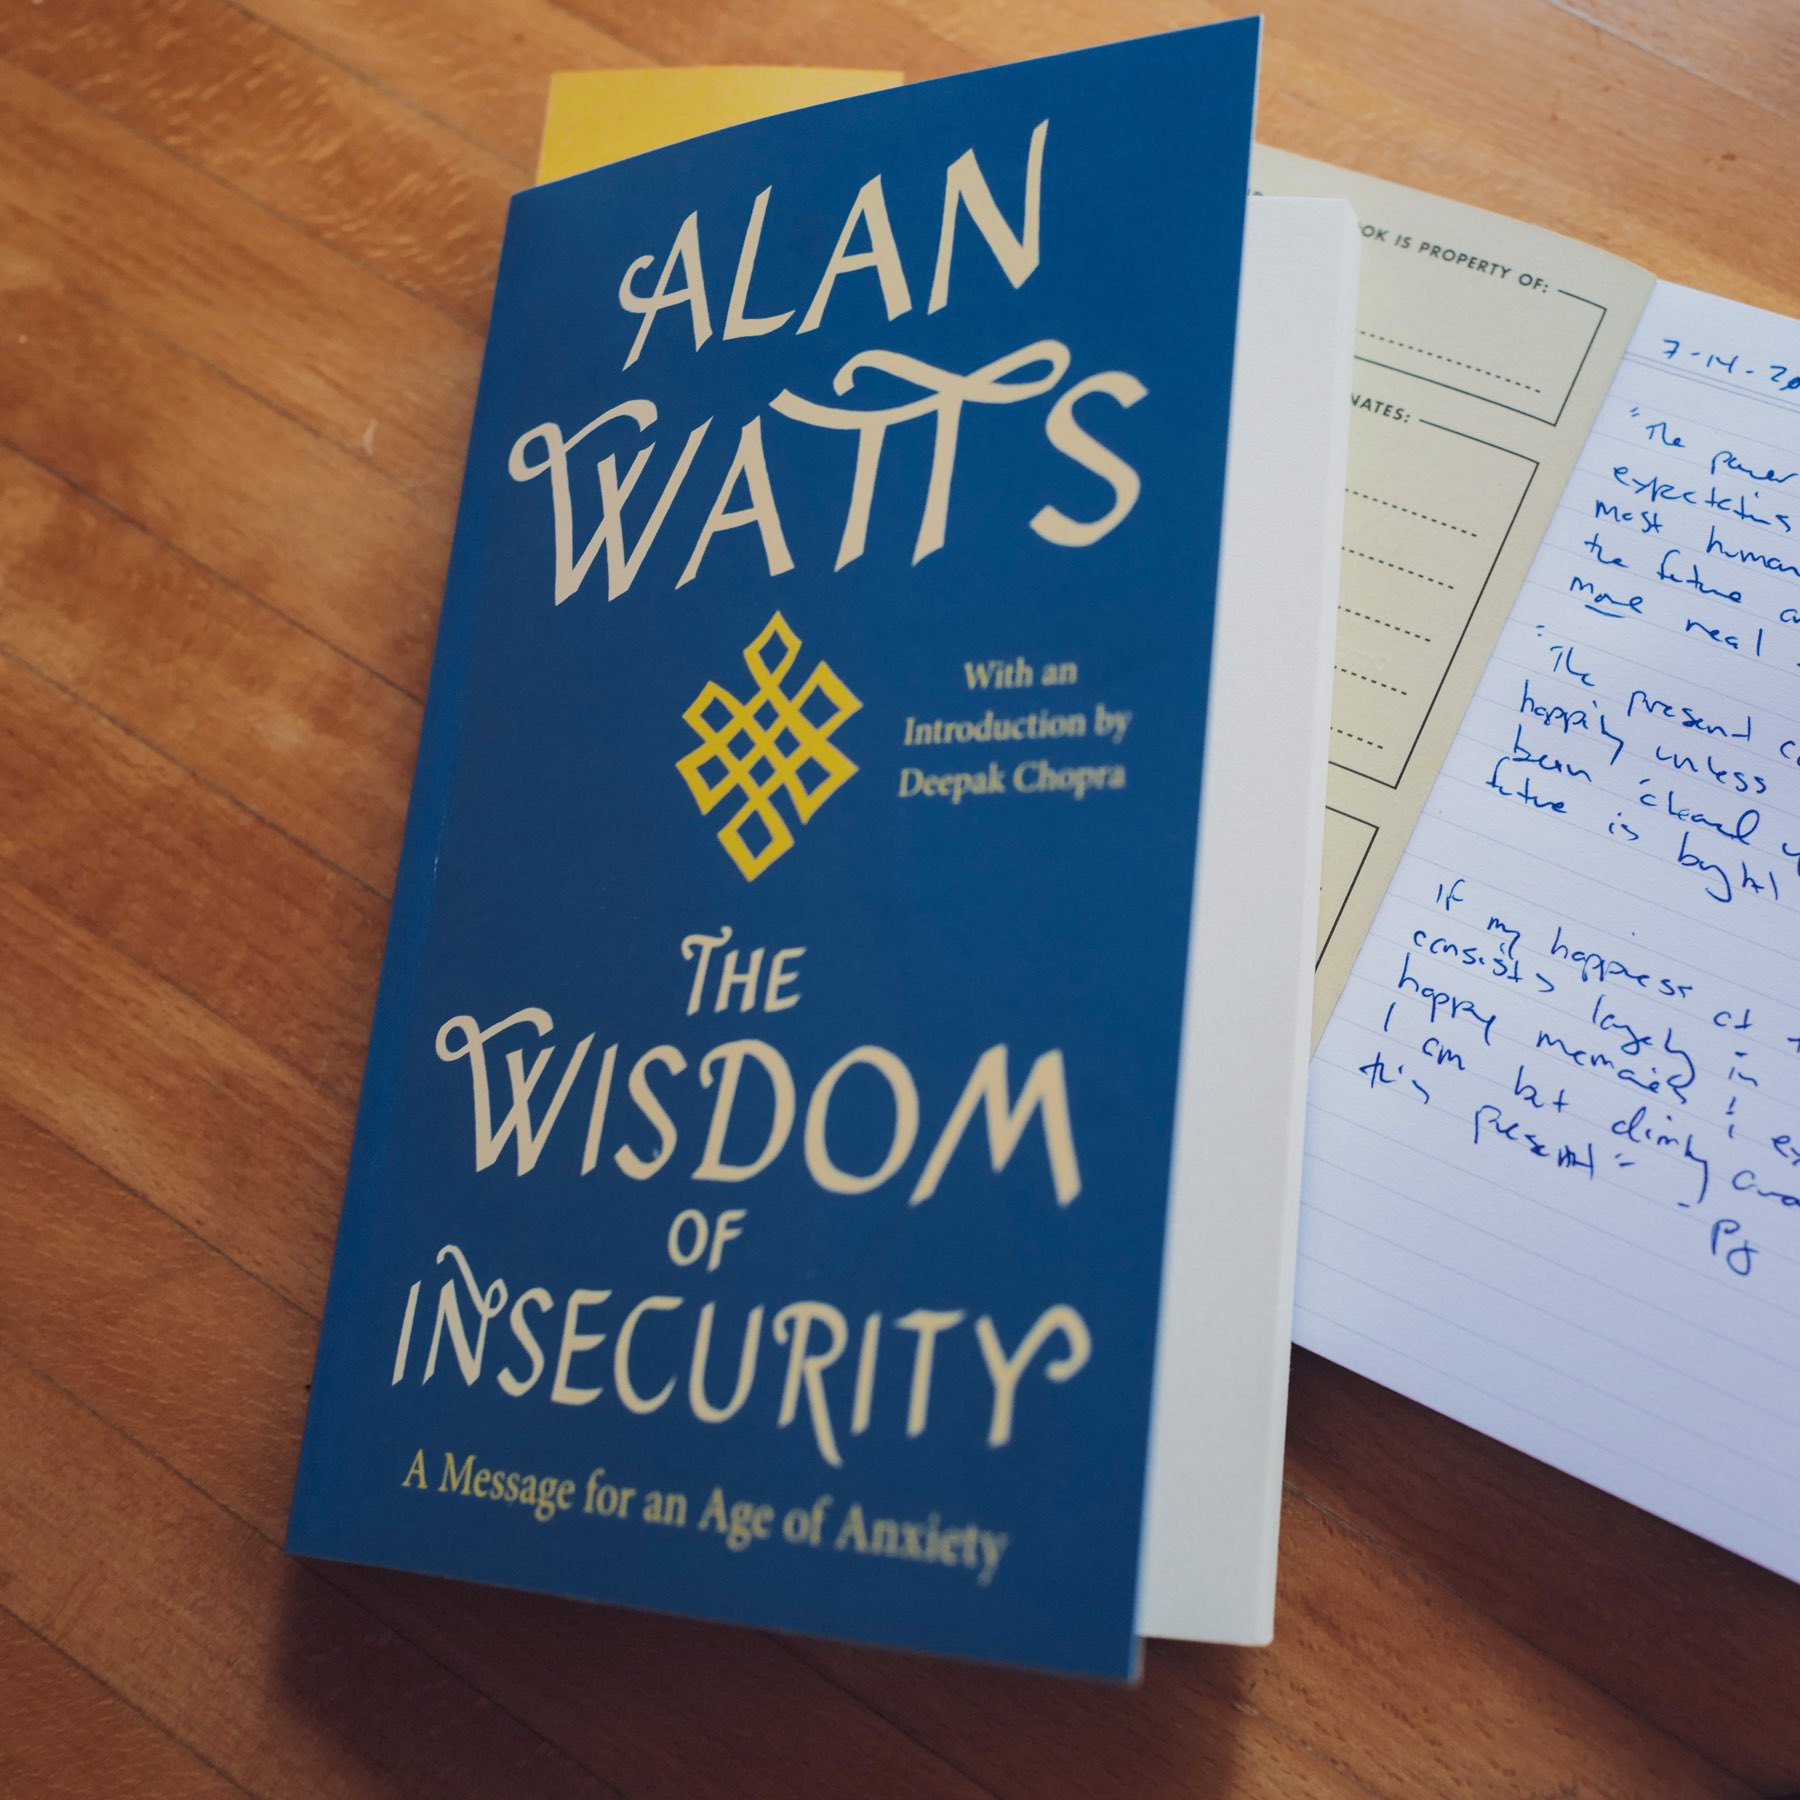 ALAN
WATTS
With an
Introduction by
Deepak Chopra
THE
WISDOM
OF
INSECURITY
A Message for an Age of Anxiety
OK IS PROPERTY OF:
NATES:
7-14-20
"The power
expectations
most human
the future
more real
"The present
happily unless
been cleared
future is bright
If my happiness at
consists largely in
happy memories &
I am but dimly
this present" -